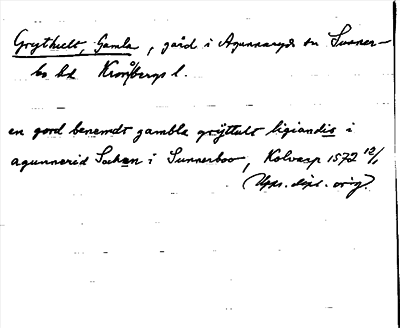 Grythult, Gamla, gård i Agunnaryds sn Sunner-
bo hd Kronobergs l.
en gord benemdt gambla gryttult ligiandis i
agunnerid Sochen i Sunnerboo, Kolvarp 1572 12/1
(Upps. dipl. orig.)